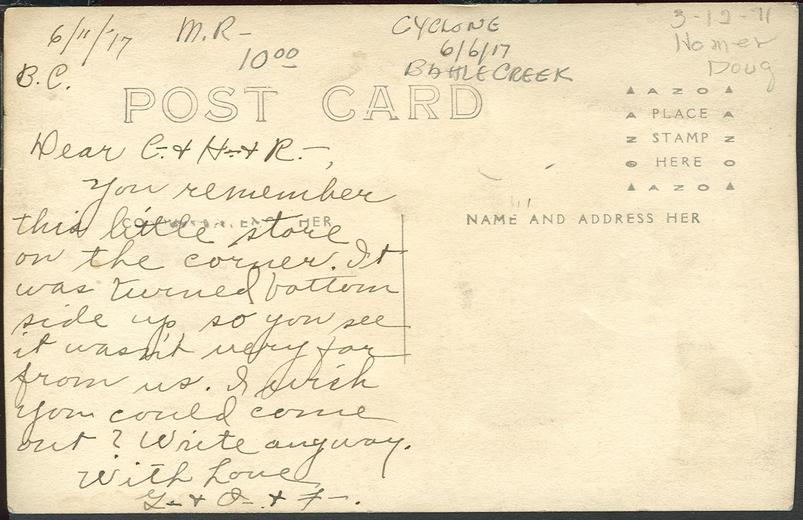 6/11/'17 M.R-
10⁰⁰
B.C.
CYCLONE
6/6/17
BATTLE CREEK
3-12-71
Homer
Doug
POST CARD
▲ AZO ▲
▲ PLACE ▲
Z STAMP Z
HERE
▲ AZO ▲
NAME AND ADDRESS HER
HER
Dear C. & H. & R.-,
You remember
this little store
on the corner. It
was turned bottom
side up so you see
it wasn't very far
from us. I wish
you could come
out? Write anyway.
With Love
G- & O- & F-.